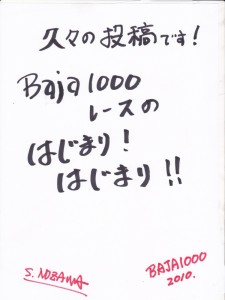 久々の投稿です!
Baja1000
レースの
はじまり!
はじまり!!
S. NOZAWA
BAJA1000
2010.